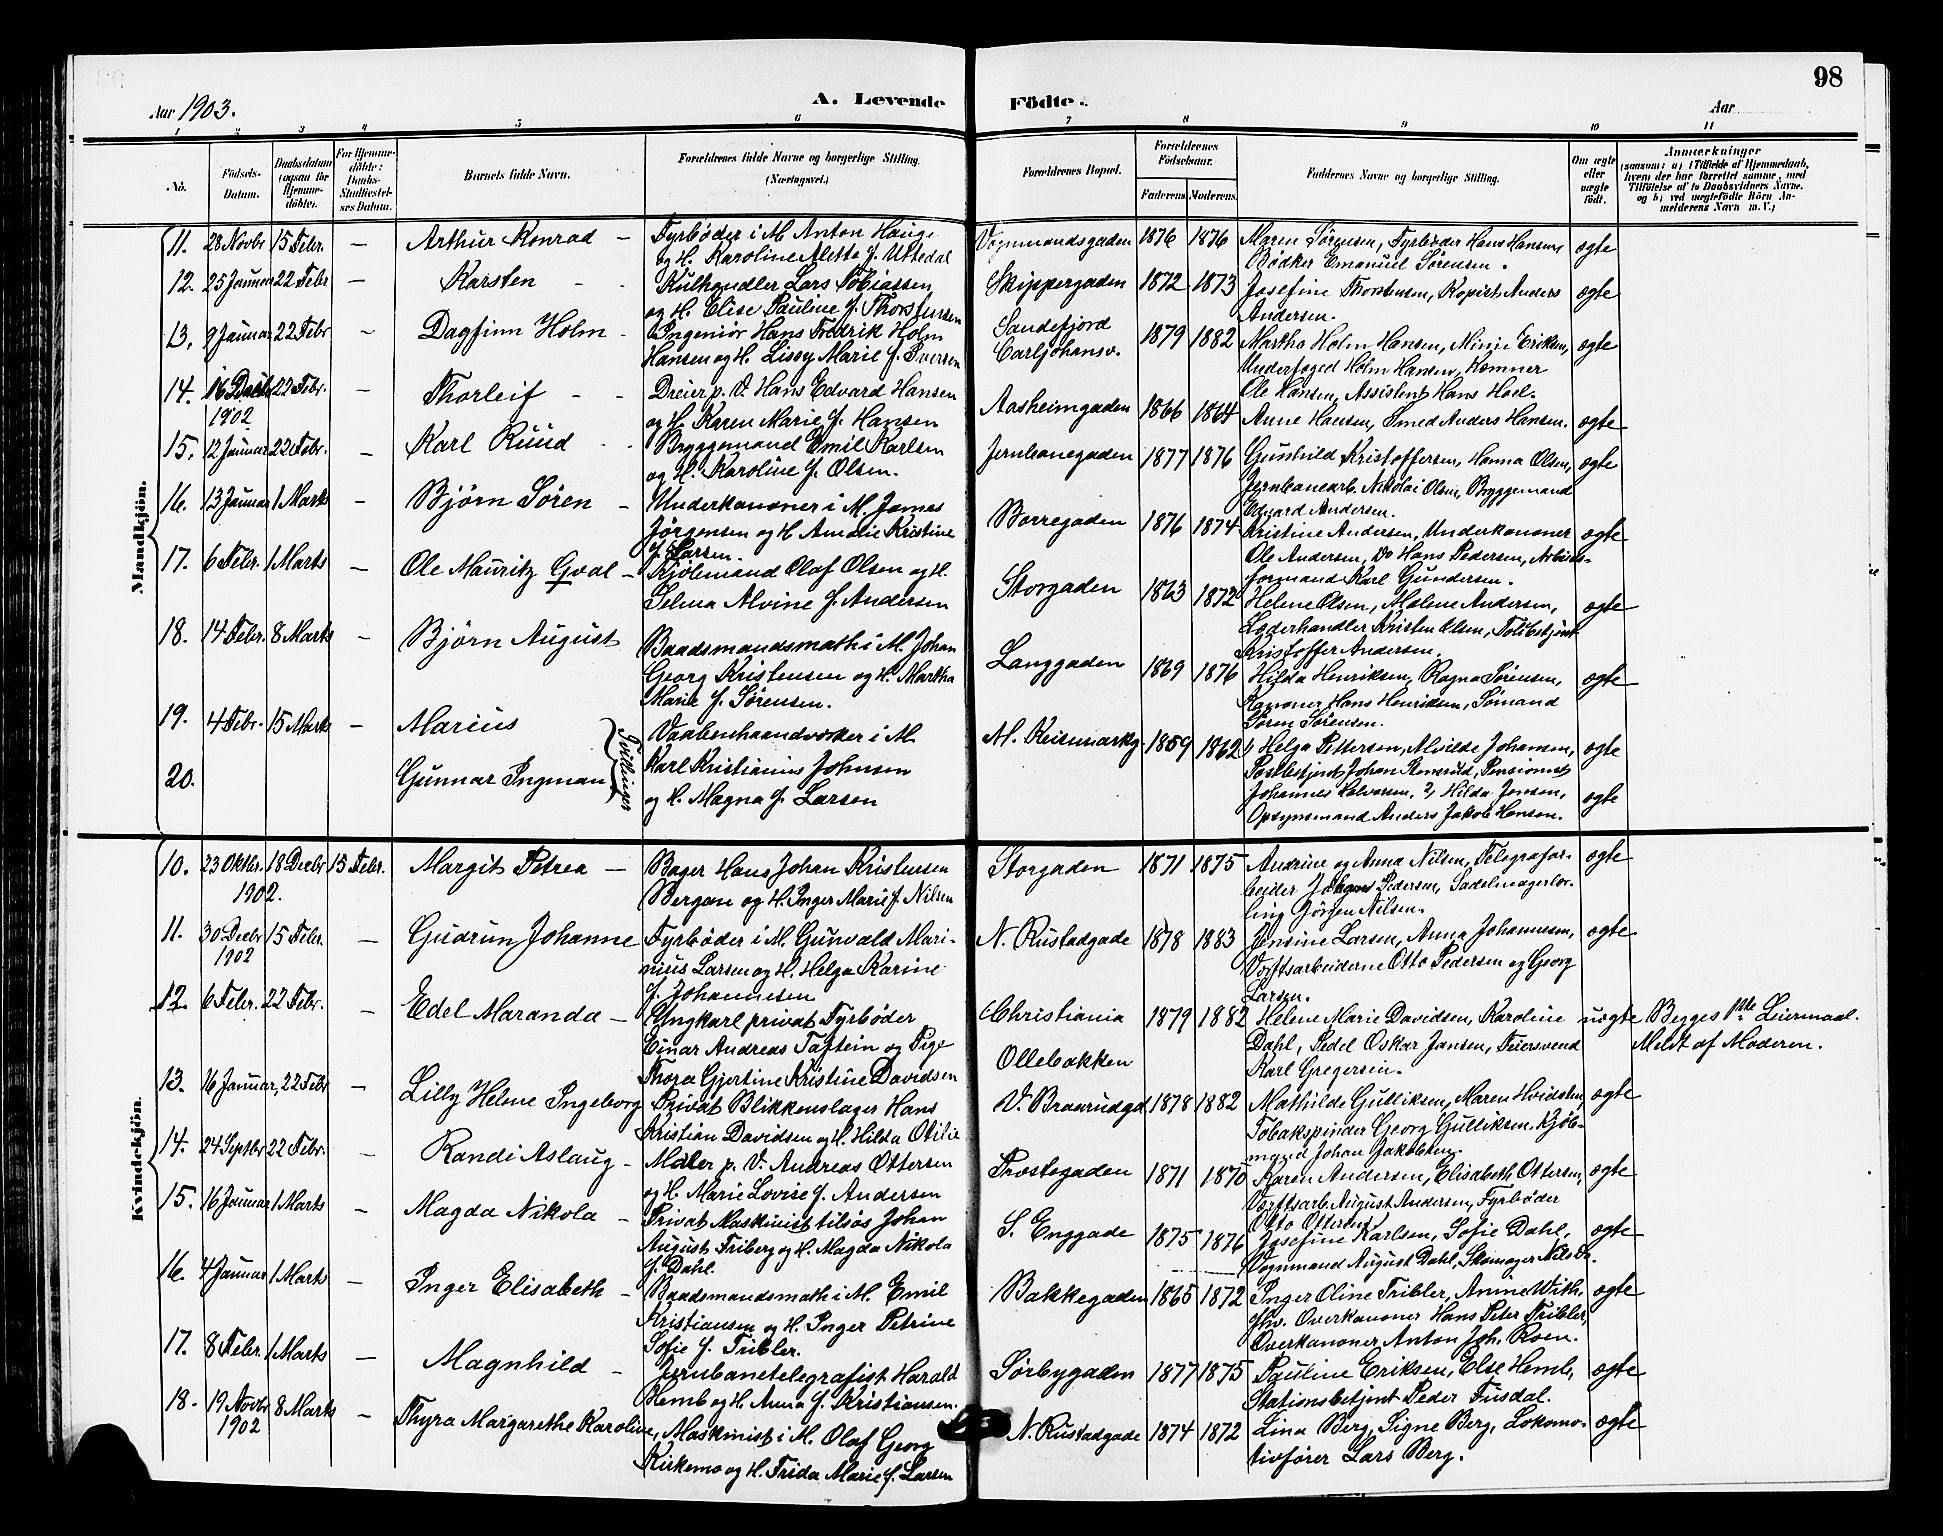 98
Aar 1903.
A. Levende Födte.
Aar
1 2 3 4 5 6 7 8 9 10 11
No.
Födsels-Datum.
Daabsdatum (ogsaa for Hjemme-döbte).
For Hjemme-döbte: Daabs-Stadfæstel-ses Datum.
Barnets fulde Navn.
Forældrenes fulde Navne og borgerlige Stilling. (Næringsvei.)
Forældrenes Bopæl.
Forældrenes Födselsaar.
Faderens. Moderens.
Faddernes Navne og borgerlige Stilling.
Om ægte eller uægte födt.
Anmærkninger
(saasom: a) i Tilfælde af Hjemmedaab, hvem der har forrettet samme, med Tilföielse af to Daabsvidners Navne, og b) ved uægtefödte Börn Anmelderens Navn m. V.)
Mandkjön.
11. 28 Novbr 15 Febr. — Arthur Konrad — Fyrbøder i M. Anton Hauge
og H. Karoline Alette f. Uttedal
Vognmandsgaden 1876 1876 Maren Sørensen, Fyrbøder Hans Hansen
Bødker Emanuel Sørensen. ægte
12. 25 Januar 22 Febr — Karsten - - Kulhandler Lars Tobiassen
og H. Elise Pauline f. Thorstensen
Skippergaden 1872 1873 Josefine Thorstensen, Kopist Anders
Andersen. ægte
13. 9 Januar 22 Febr — Dagfinn Holm - Ingeniør Hans Fredrik Holm
Hansen og H. Lissy Marie f. Iversen
Sandefjord
Carljohansv. 1879 1882 Martha Holm Hansen, Minie Eriksen,
Underfoged Holm Hansen, Kemner
Ole Hansen, Assistent Hans Hoel. ægte
14. 16 Decbr 22 Febr. — Thorleif - - Dreier p. V. Hans Edvard Hansen
1902
og H. Karen Marie f. Hansen
Aasheimgaden 1866 1864 Anne Hansen, Smed Anders Hansen. ægte
15. 12 Januar 22 Febr. — Karl Ruud - - Bryggemand Emil Karlsen
og H. Karoline f. Olsen.
Jernbanegaden 1877 1876 Gunhild Kristoffersen, Hanna Olsen,
Jernbanearb. Nikolai Olsen, Bryggemand
Edvard Andersen. ægte
16. 13 Januar 1 Marts — Bjørn Søren - Underkanoner i M. James
Jørgensen og H. Amalie Kristine
f. Larsen.
Borregaden 1876 1874 Kristine Andersen, Underkanoner
Ole Andersen, Do Hans Pedersen, Arbeids-
formand Karl Gundersen. ægte
17. 6 Febr. 1 Marts — Ole Mauritz Gval - Kjølemand Olaf Olsen og H.
Selma Alvine f. Andersen
Storgaden 1863 1872 Helene Olsen, Malene Andersen,
Læderhandler Kristen Olsen, Toldbetjent
Kristoffer Andersen. ægte
18. 14 Febr. 8 Marts — Bjørn August Baadsmandsmath i M. Johan
Georg Kristensen og H. Martha
Marie f. Sørensen.
Langgaden 1869 1876 Hilda Henriksen, Ragna Sørensen,
Kanoner Hans Henriksen, Sømand
Søren Sørensen. ægte
19. 4 Febr. 15 Marts — Marius Vaabenhaandværker i M.
20. Gunnar Ingman Tvillinger
Karl Kristianus Johnsen
og H. Magna f. Larsen
M. Keisemarkg. 1859 1862 1, Helga Pettersen, Alvilde Johansen,
Postbetjent Johan Stensrud, Pensionist
Johannes Halvorsen. 2, Hilda Jensen,
Opsynsmand Anders Jakob Hansen. ægte
ægte
Kvindekjön.
10. 23 Oktbr. 18 Decbr 15 Febr. Margit Petrea — Bager Hans Johan Kristensen
1902.
Bergan og H. Inger Marie f. Nilsen
Storgaden 1871 1875 Andrine og Anna Nilsen, Telegrafar-
beider Johannes Pedersen, Sadelmagerlær-
ling Jörgen Nilsen. ægte
11. 30 Decbr 15 Febr. — Gudrun Johanne Fyrbøder i M. Gunvald Mari-
1902
nius Larsen og H. Helga Karine
f. Johannesen
N. Rustadgade 1878 1883 Jensine Larsen, Anna Johannesen,
Værftsarbeiderne Otto Pedersen og Georg
Larsen. ægte
12. 6 Febr. 22 Febr. — Edel Maranda — Ungkarl privat Fyrbøder
Einar Andreas Taftein og Pige
Thora Gjertine Kristine Davidsen
Christiania
Ollebakken 1879 1882 Helene Marie Davidsen, Karoline
Dahl, Pedel Oskar Jansen, Feiersvend
Karl Gregersen. uægte Begges 1ste Leiermaal.
Meldt af Moderen.
13. 16 Januar, 22 Febr — Lilly Helene Ingeborg Privat Blikkenslager Hans
Kristian Davidsen og H. Hilda Otilie
V. Braarudgd 1878 1882 Mathilde Gulliksen, Maren Hvidsten,
Tobakspinder Georg Gulliksen, Kjøb-
mand Johan Jakobsen. ægte
14. 24 Septbr 22 Febr. — Randi Aslaug - Maler p. V. Andreas Ottersen
og H. Marie Lovise f. Andersen
Prostegaden 1871 1870 Karen Andersen, Elisabeth Ottersen,
Værftsarb. August Andersen, Fyrbøder
Otto Ottersen. ægte
15. 16 Januar 1 Marts — Magda Nikola - Privat Maskinist tilsøs Johan
August Friberg og H. Magda Nikola
f. Dahl.
S. Enggade 1875 1876 Josefine Karlsen, Sofie Dahl,
Vognmand August Dahl, Skomager Nils Dn. ægte
16. 4 Januar 1 Marts — Inger Elisabeth - Baadsmandsmath i M. Emil
Kristiansen og H. Inger Petrine
Sofie f. Tribler.
Bakkegaden 1865 1872 Inger Oline Tribler, Anine With,
Ihv. Overkanoner Hans Peter Tribler,
Overkanoner Anton Joh. Roen. ægte
17. 8 Febr. 1 Marts — Magnhild - Jernbanetelegrafist Harald
Hemb og H. Anna f. Kristiansen.
Sørbygaden 1877 1875 Pauline Eriksen, Else Hemb,
Stationsbetjent Peder Fusdal. ægte
18. 19 Novbr 8 Marts — Thyra Margarethe Karoline, Maskinist i M. Olaf Georg
1902
Kirkemo og H. Frida Marie f. Larsen
N. Rustadgade 1874 1872 Lina Berg, Signe Berg, Lokomo-
tivfører Lars Berg. ægte